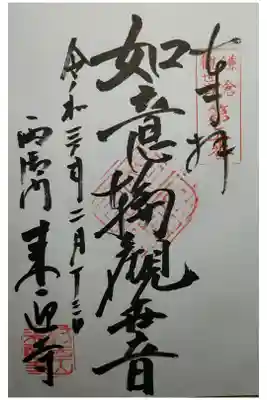 奉拝
如意輪観世音
令和三年二月十三日
西御門 来迎寺